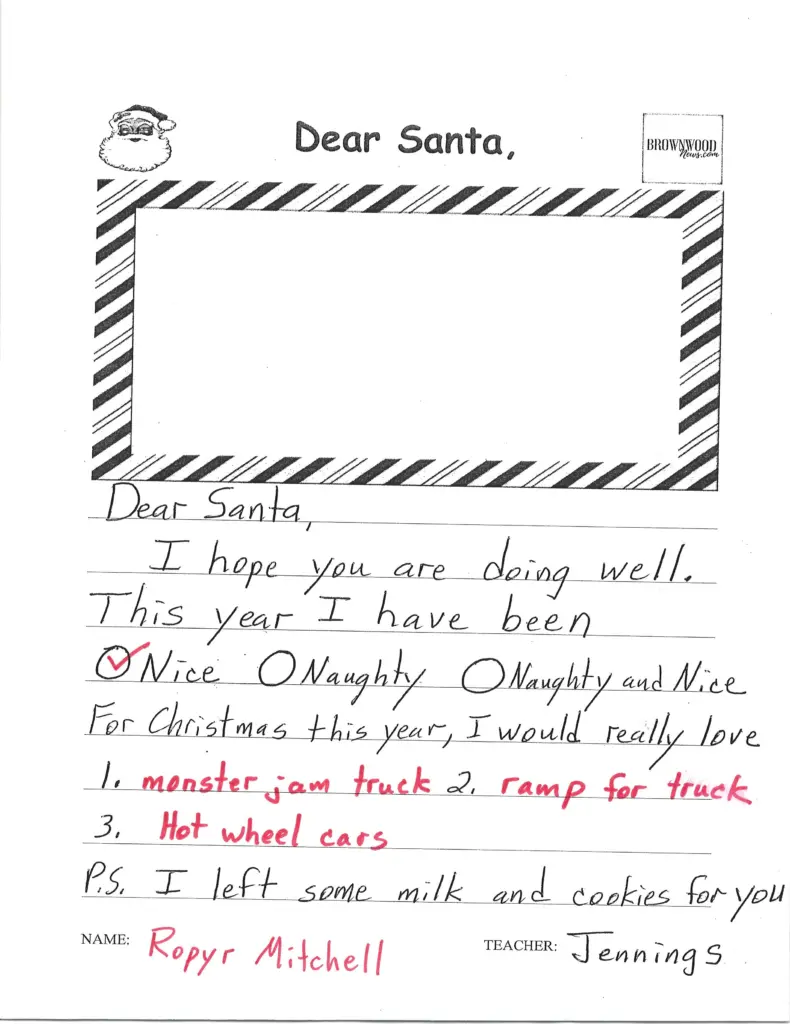 Dear Santa,
BROWNWOOD
News.com
Dear Santa,
I hope you are doing well.
This year I have been
Nice Naughty Naughty and Nice
For Christmas this year, I would really love
1. monster jam truck 2. ramp for truck
3. Hot wheel cars
P.S. I left some milk and cookies for you
NAME: Ropyr Mitchell TEACHER: Jennings